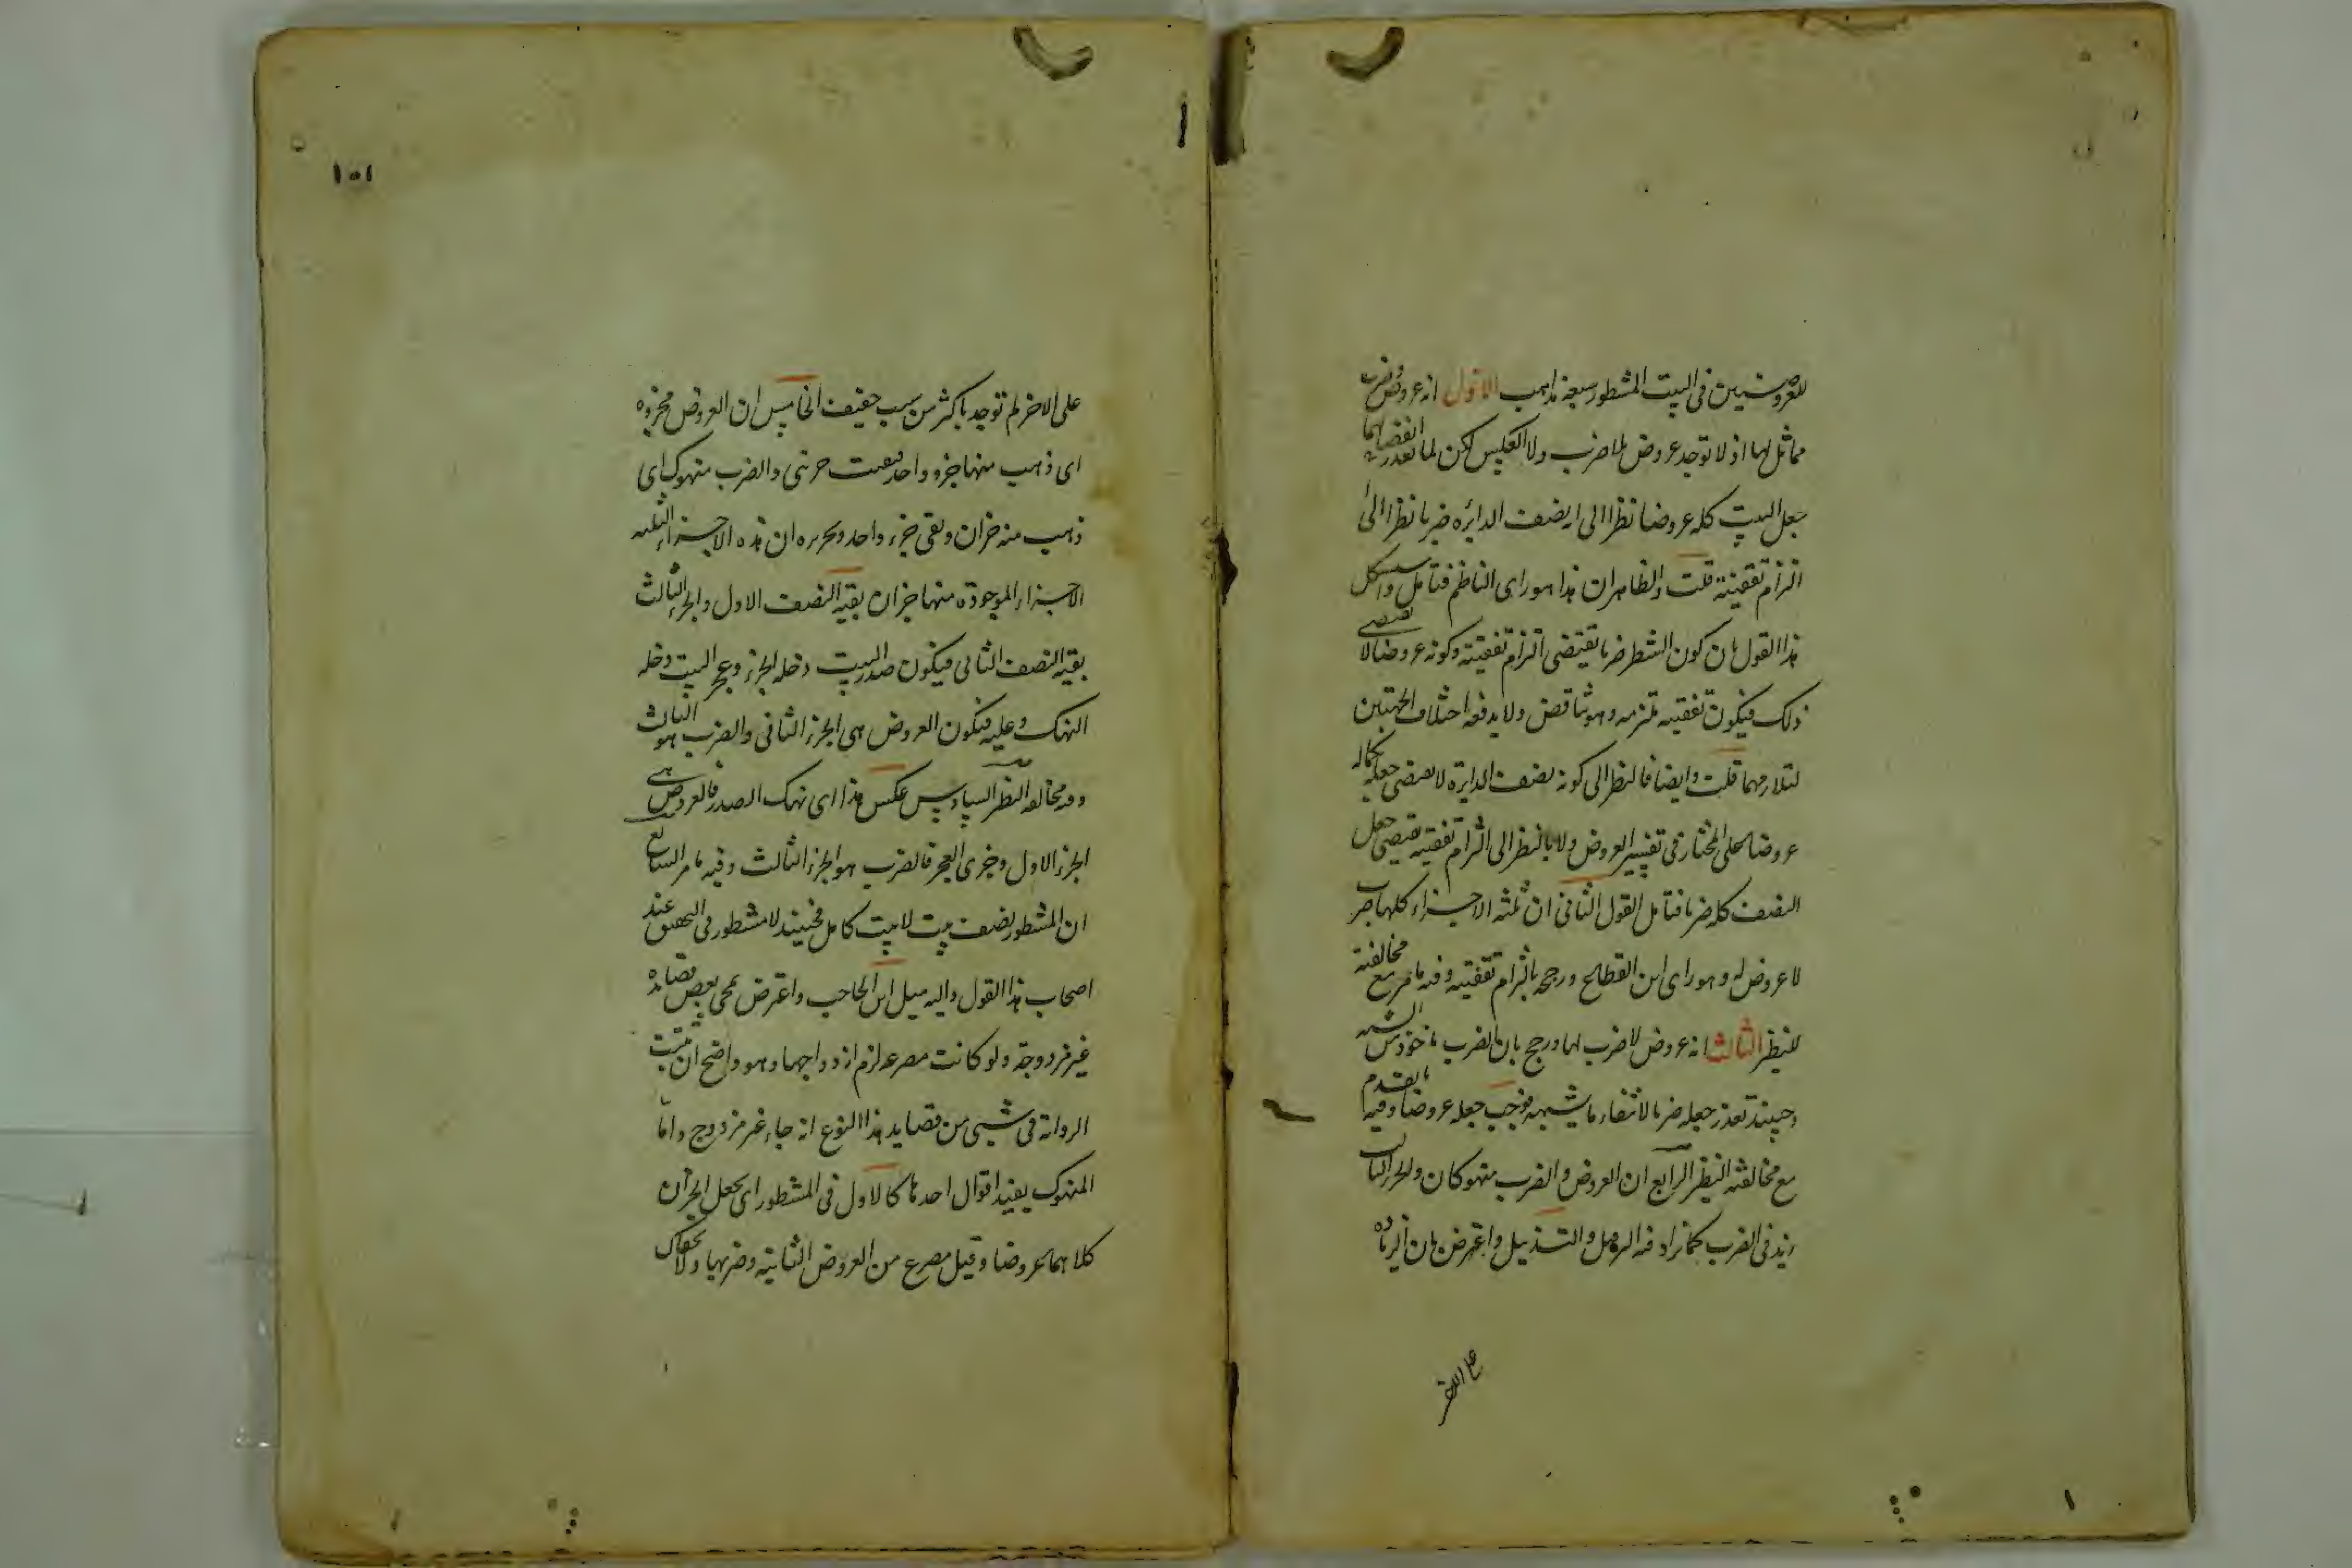 للعروضيين في البيت المشطور سبعة مذاهب الاول انه عروض وضرب
مماثل لها اذ لا توجد عروض بلا ضرب ولا العكس لكن لما تعذر انفصالهما
جعل البيت كله عروضا نظرا الى انه نصف الدايره ضربا نظرا الى
التزام تقفيته قلت والظاهر ان هذا هو راى الناظم فتامل واستشكل
هذا القول بان كون الشطر ضربا يقتضى التزام تقفيته وكونه عروضا لا يقتضى
ذلك فيكون تقفيته ملتزمه وهو تناقض ولا يدفعه اختلاف الجهتين
لتلازمهما قلت وايضا فالنظر الى كونه نصف الدايرة لا يقتضى جعله بكماله
عروضا على المختار فى تفسير العروض ولا بالنظر الى التزام تقفيته يقتضى جعل
النصف كله ضربا فتامل القول الثانى ان ثلثه الاجزاء كلها ضرب
لا عروض له وهو راى ابن القطاع ورجح بالتزام تقفيته وفيه ما مر مع مخالفته
للنظير الثالث انه عروض لا ضرب لها ورجح بان الضرب ماخوذ من الشبه
وحينئذ تعذر جعله ضربا لانتفاء ما يشبهه فوجب جعله عروضا وفيه ما تقدم
مع مخالفته النظير الرابع ان العروض والضرب منهوكان والجزء الثالث
زيد فى الضرب كما يزاد فيه الترفيل والتذييل واعترض بان الزياده
على الاخر
١٥١
على الاخر لم توجد باكثر من سبب خفيف الخامس ان العروض مجزوه
اى ذهب منها جزو واحد وبقيت جزئى والضرب منهوك اى
ذهب منه جزان وبقى جزء واحد وتحريره ان هذه الاجزاء الثلثه
الاجزاء الموجوده منها جزان بقيه النصف الاول والجزء الثالث
بقيه النصف الثانى فيكون صدر البيت دخله الجزء وعجز البيت دخله
النهك وعليه فيكون العروض هى الجزء الثانى والضرب هو الثالث
وفيه مخالفه النظير السادس عكس هذا اى نهك الصدر فالعروض هى
الجزء الاول وجزى العجز فالضرب هو الجزء الثالث وفيه ما مر السابع
ان المشطور نصف بيت لا بيت كامل فحينئذ لا مشطور فى التحقيق عند
اصحاب هذا القول واليه ميل ابن الحاجب واعترض بمجى بعض قصايده
غير مزدوجة ولو كانت مصرعه لزم ازدواجها وهو واضح ان ثبتت
الرواية فى شىء من قصايد هذا النوع انه جاء غير مزدوج واما
المنهوك ففيه اقوال احدها كالاول فى المشطور اى بجعل الجزآن
كلاهما عروضا وقيل مصرع من العروض الثانية وضربها ولا